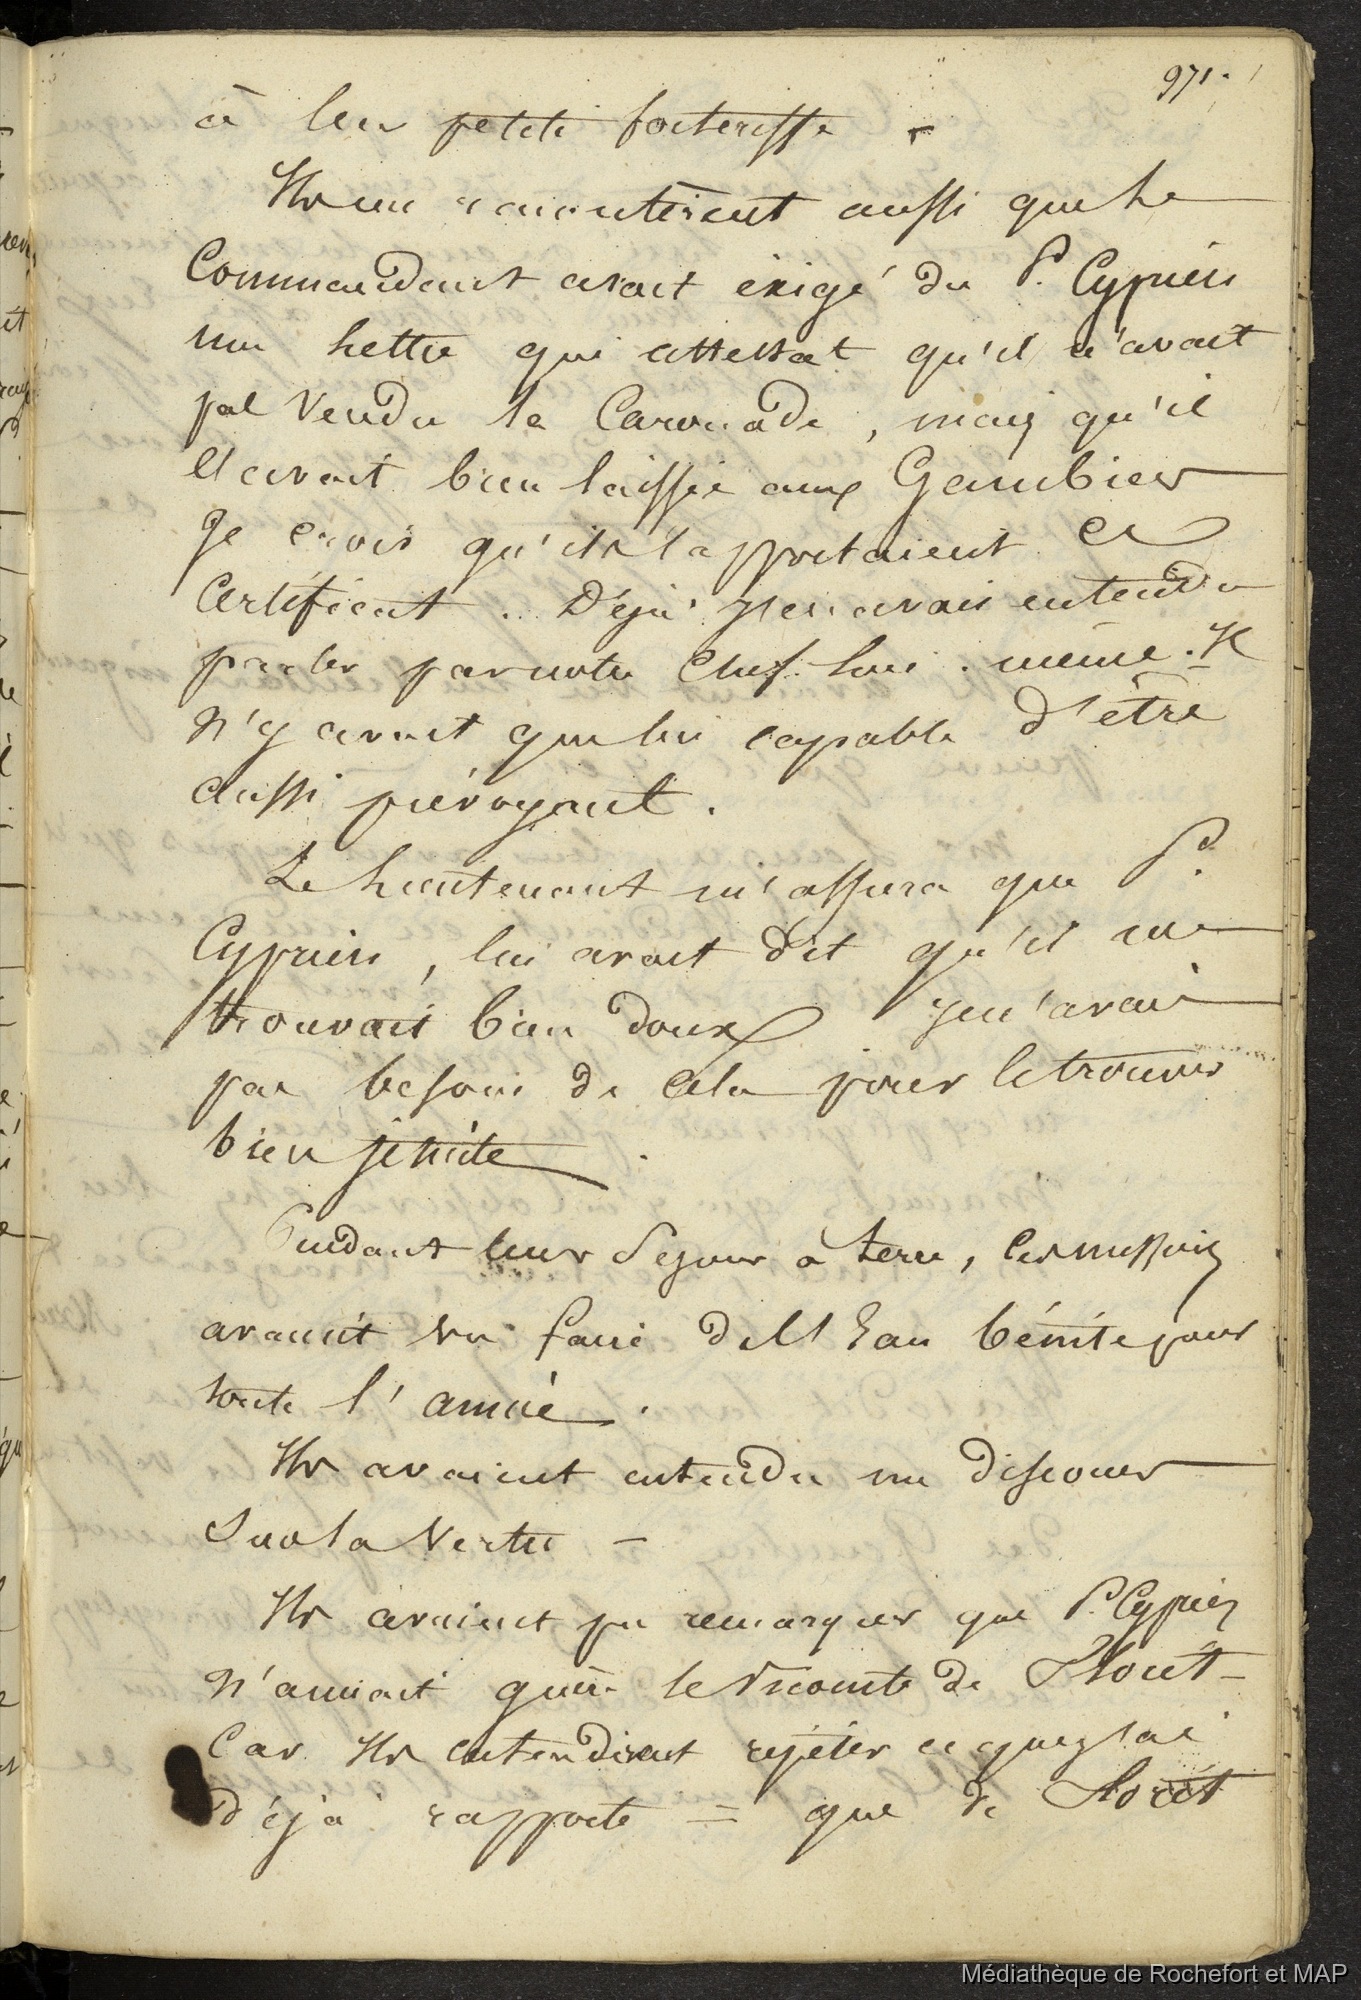 971.
à leur petite forteresse.
Ils me racontèrent aussi que le
Commandant avait exigé du P. Cyprien
une lettre qui attestat qu'il n'avait
pas vendu la Caronade, mais qu'il
l'avait bien laissée aux Gambier
Je crois qu'ils rapportaient ce
Certificat. Déjà j'en avais entendu
parler par notre Chef lui-même. Il
n'y avait que lui capable d'être
aussi prévoyant.
Le lieutenant m'assura que P.
Cyprien, lui avait dit qu'il me
trouvait bien doux je n'avais
pas besoin de cela pour le trouver
bien jésuite.
Pendant leur séjour à terre, ces messieurs
avaient vu faire de l'Eau bénite pour
toute l'année.
Ils avaient entendu un discours
sur la Vertu —
Ils avaient pu remarquer que P. Cyprien
n'aimait guère le Vicomte de
Car ils entendirent répéter ce que j'ai
déjà rapporté = que de
Médiathèque de Rochefort et MAP